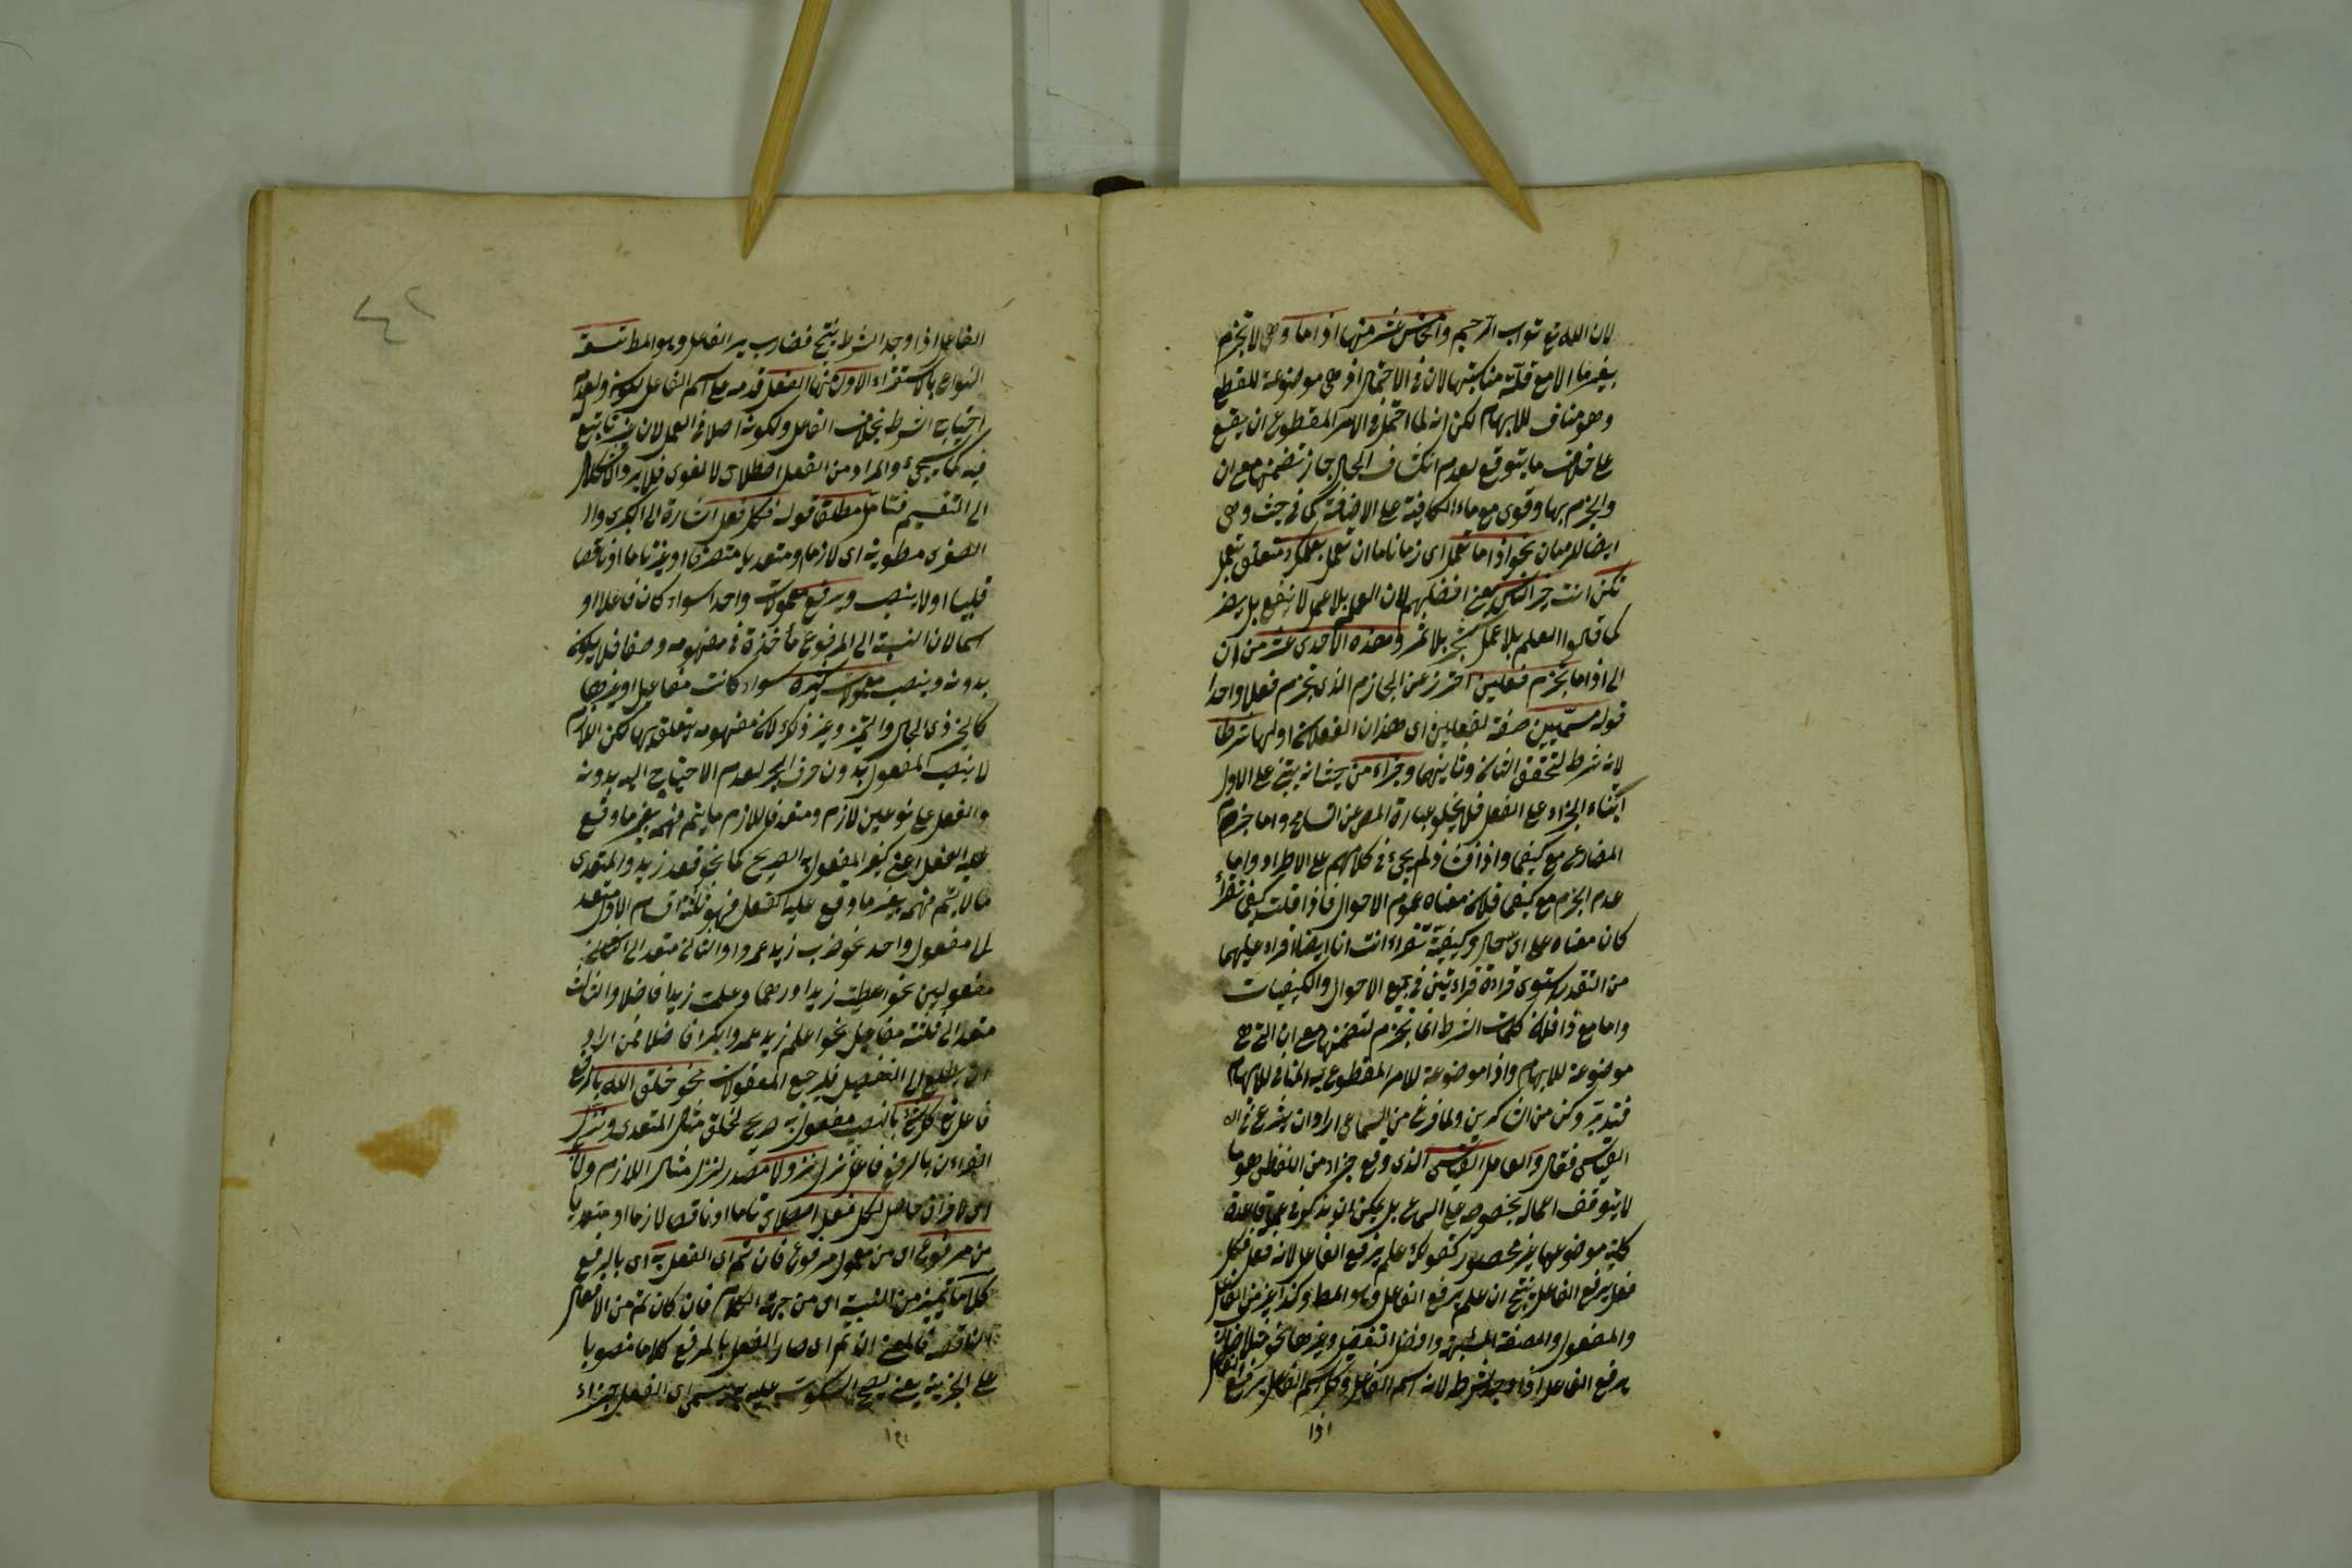 لان الله تع تواب الرحيم والخامس عشر منها اذاما وهى لا تجزم
بغير ما الا مع قلة مناسبتها لان فى الاحتمال اذ هى موضوعة للقطع
وهو مناف للابهام لكن انه لما احتمل فى الامر المقطوع ان يقع
على خلاف ما يتوقع لعدم انكشاف الحال جاز تضمنها مع ان
والجزم بها وقوى مع ماء الكافة على الاضافة كما فى حيث وهى
ايضا للزمان نحو اذاما تعمل اى زمانا ما ان تعمل بعلمك متعلق بتعمل
تكن انت خير الناس يعنى افضلهم لان العلم بلا عمل لا ينفع بل يضر
كما قالوا العلم بلا عمل شجر بلا ثمر وهذه الاحدى عشر من ان
الى اذاما تجزم فعلين احترز عن الجازم الذى يجزم فعلا واحدا
قوله مسميين صفة لفعلين اى هذان الفعلان اولهما شرطا
لانه شرط لتحقق الثانى وثانيهما وجزاء من حيث انه يبتنى على الاول
ابتناء الجزاء على الفعل فلا يخلو عبارة المص عن التسامح واما جزم
المضارع مع كيفما واذا فشاذ لم يجئ فى كلامهم على الاطراد واما
عدم الجزم مع كيفما فلان معناه عموم الاحوال فاذا قلت كيفما تقرأ
كان معناه على اى حال وكيفية تقراء انت انا ايضا اقراء عليهما
من التقدير استوى قراءة قراءتين فى جميع الاحوال والكيفيات
واما مع اذا فلان كلمات الشرط انما تجزم لتضمنها مع ان التى هى
موضوعة للابهام واذا موضوعة للامر المقطوع به المنافى للابهام
فتدبر وكن من الشاكرين ولما فرغ من السماعى اراد ان يشرع فى
القياسى فقال والعامل القياسى الذى وقع جزاء من اللفظى هو ما
لا يتوقف اعماله بخصوصه على السماع بل يمكن ان يذكر فى عمله قاعدة
كلية موضوعها غير محصور كقولك علم يرفع الفاعل لانه فعل فكل
فعل يرفع الفاعل ينتج ان علم يرفع الفاعل وهو المط وكذا غيره من الفاعل
والمفعول والصفة المشبهة وافعل التفضيل وغيرها نحو مثلا ضارب
يرفع الفاعل اذا وجد الشرط لانه اسم الفاعل وكل اسم الفاعل يرفع الفاعل
اذا
الفاعل اذا وجد الشرط ينتج فضارب يرفع الفاعل وهو المط تسعة
انواع بالاستقراء الاول منها الفعل قدمه على اسم الفاعل لكونه ولعدم
احتياج الشرط بخلاف الفاعل ولكونه اصلا فى العمل لان غيره تابع
فيه كما سيجئ والمراد من الفعل اصطلاحى لا لغوى فلا يرد الاشكال
الى التقسيم فتأمل مطلقا قوله فكل فعل اشارة الى الكبرى وال
الصغرى مطوية اى لازما ومتعديا متصرفا او غيره تاما او ناقصا
قلبيا اولا ينصب ويرفع معمولا واحدا سواء كان فاعلا او
اسما لان النسبة الى المرفوع مأخوذة فى مفهومه وضعا فلا يكون
بدونه وينصب معمولات كثيرة سواء كانت مفاعيل او غيرها
كالخبر ذى الحال والتميز وغير ذلك لان مفهومه يتعلق بها لكن اللازم
لا ينصب المفعول بدون حرف الجر لعدم الاحتياج اليه بدونه
والفعل على نوعين لازم ومتعد فاللازم ما يتم فهمه بغير ما وقع
عليه الفعل اعنى بغير المفعول به الصريح كما نحو قعد زيد والمتعدى
ما لا يتم فهمه بغير ما وقع عليه الفعل فهو ثلثة اقسام الاول متعد
الى مفعول واحد نحو ضرب زيد عمروا والثانى متعد الى
مفعولين نحو اعطيت زيدا درهما وعلمت زيدا فاضلا والثالث
متعد الى ثلثة مفاعيل نحو اعلم زيد عمروا بكرا فاضلا فمن اراد
ان يطلع الى التفصيل فليرجع المعقولات نحو خلق الله بالرفع
فاعل تع كل شئ بالنصب مفعول به صريح لخلق مثال المتعدى ونزل
القرءان بالرفع فاعل نزل نزولا مصدر لنزل مثال اللازم ولا
اى لا فراق حاصل لكل فعل اصطلاحى تاما او ناقصا لازما او متعديا
من مرفوع اى من معمول مرفوع فان تم اى الفعل به اى بالرفع
كلاما تميز من النسبة اى من جهة الكلام فان كان تم من الافعال
الناقصة فالمعنى ان تم اى صار الفعل بالمرفوع كلاما منصوبا
على الخبرية يعنى يصح السكوت عليه يسمى اى الفعل جزاء